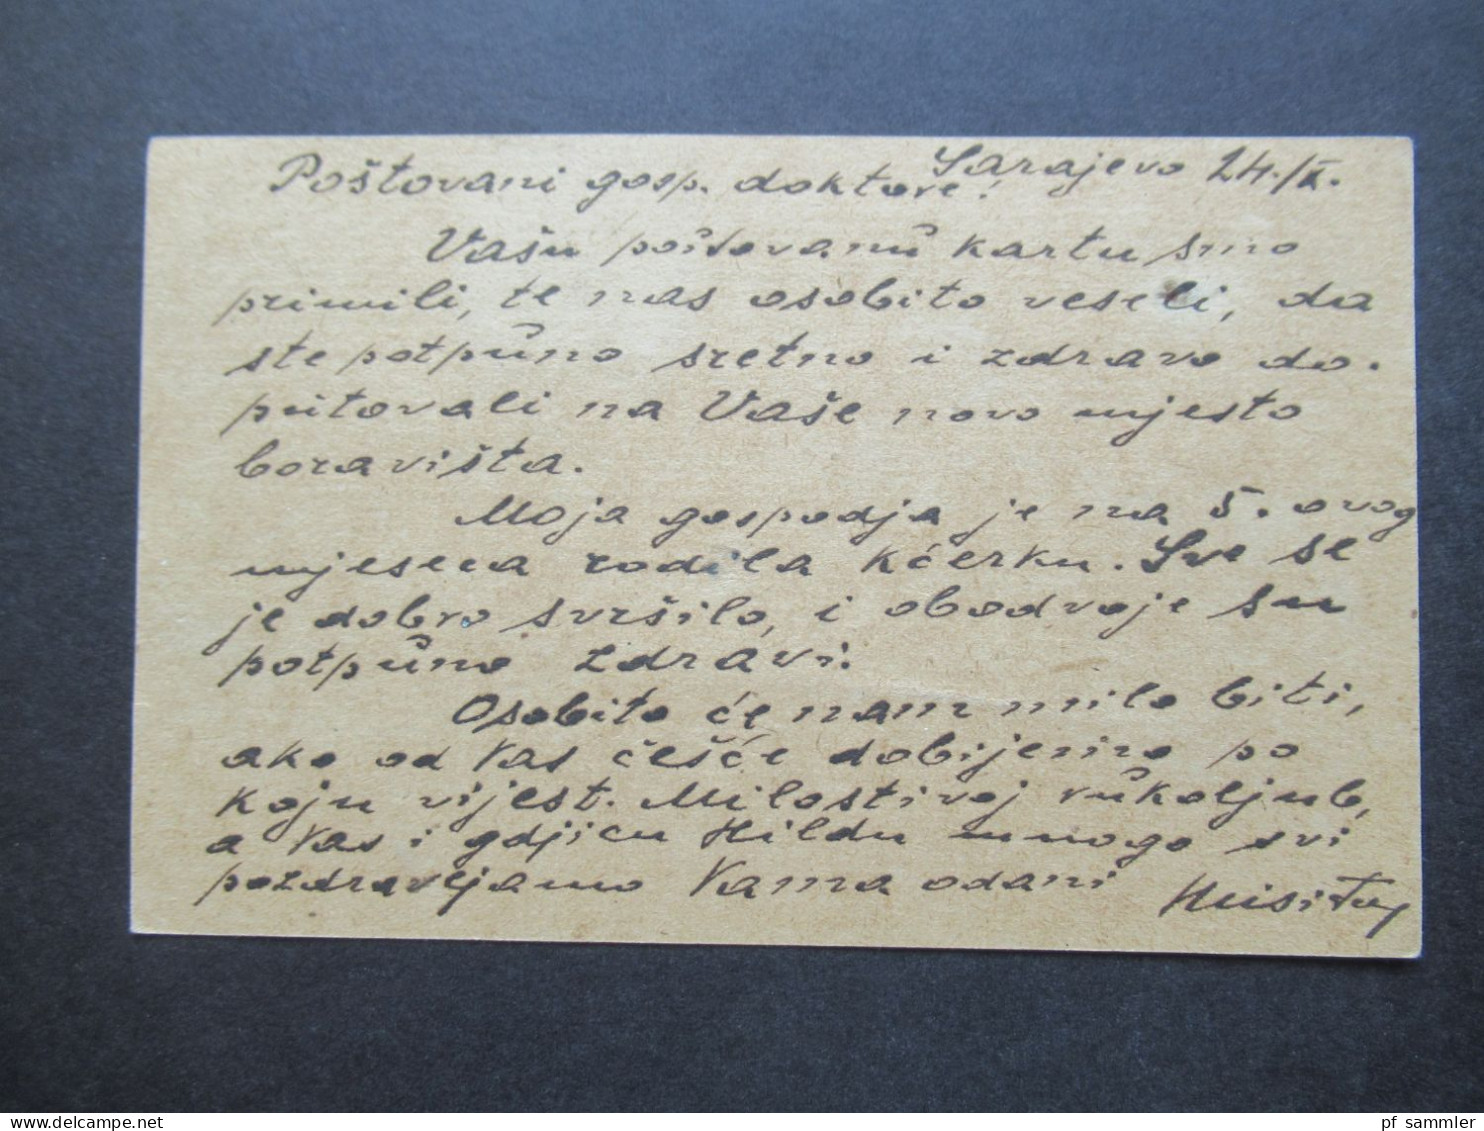 Sarajevo 24./X.
Poštovani gosp. doktore!
Vašu poštovanu kartu smo
primili, te nas osobito veseli, da
ste potpuno sretno i zdravo do-
putovali na Vaše novo mjesto
boravišta.
Moja gospodja je na 5. ovog
mjeseca rodila kćerku. Sve se
je dobro svršilo, i obodvoje su
potpuno zdravi.
Osobito će nam milo biti,
ako od Vas češće dobijemo po
koju vijest. Milostivoj rukoljub,
a Vas i gdjicu Hildu mnogo svi
pozdravljamo Vama odani
© delcampe.net
pf_sammler